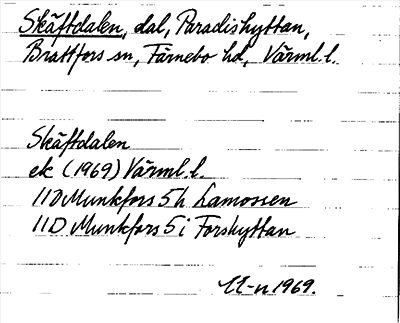 Skäftdalen, dal, Paradishyttan,
Brattfors sn, Färnebo hd, Värml. l.
Skäftdalen
ek (1969) Värml. l.
11D Munkfors 5h Lamossen
11D Munkfors 5i Forshyttan
11-n 1969.